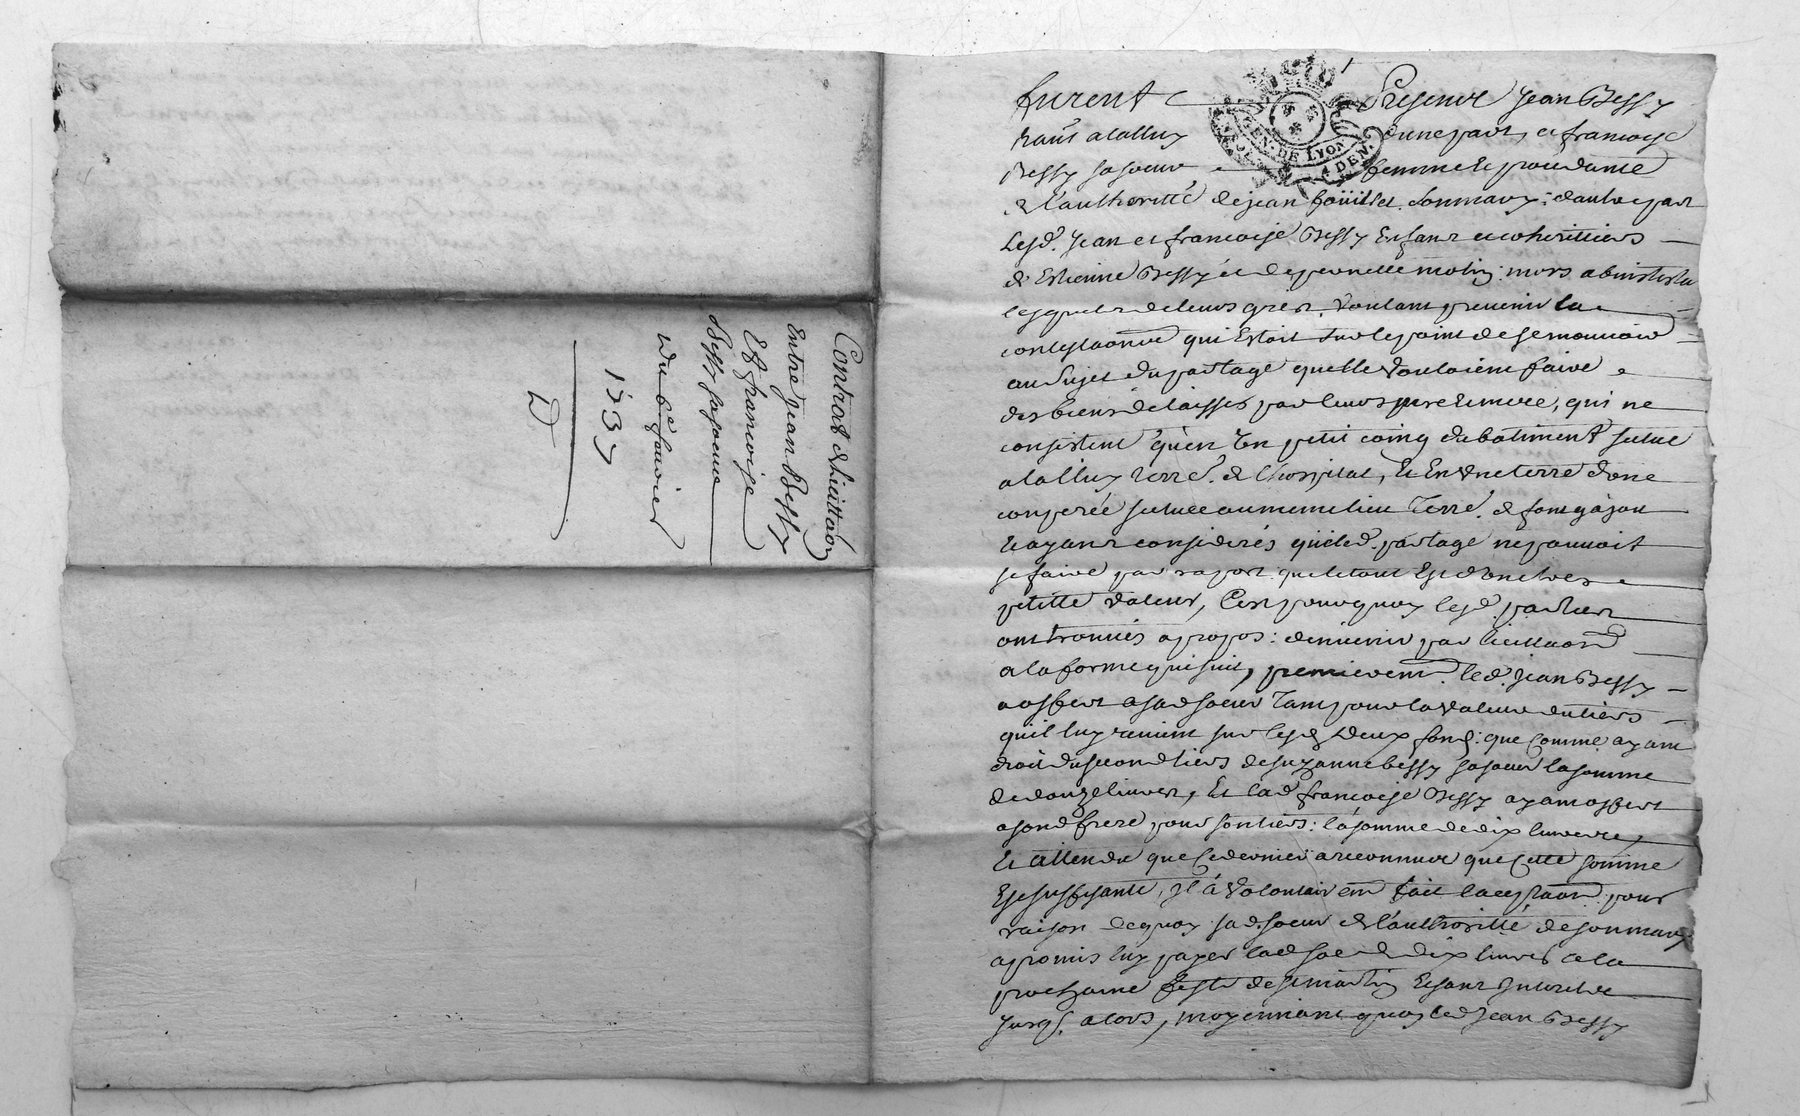 Contract dhicittaon
Entre Jean Bessy
Et francoise
Bessy sa soeur
Du 6e fevrier
1737
D
furent Presence Jean Bessy
GEN. DE LYON
4 DEN.
dune part, et francoise
Bessy sa soeur femme et procedante
de l'authoritté de jean foüillet son mary; dautre part
Lesd. Jean et francoise Bessy Enfans et coherittiers
d'Estienne Bessy et de peronette molin mors abintesta
lesquels de leurs grez, Voulant prevenir la
contestaon qui Estoit sur le point de se mouvoir
au sujet du partage quelle Vouloient faire
des biens délaissés par leurs pere Et mere, qui ne
consistent qu'en Un petit coing de batiment situé
a lalluy Terre. de lhospital, Et En Une terre dune
couperée située au meme lieu Terre. de
Et ayant considerés que led. partage ne pouvoit
se faire par raport que le tout Est dUne tres
petitte Valeur, C'est pourquoy lesd. parties
ont trouvés apropos: den venir par licittaon
a la forme qui suit, premierement. led. Jean Bessy
a offert a sad soeur Tant pour la Valeur du tiers
quil luy revient sur lesd deux fond: que Comme ayant
droit du second tiers de suzanne bessy sa soeur la somme
de douze livres, Et lad francoise Bessy ayant offert
a sond frere pour son tiers: la somme de dix livres,
Et attendu que Ce dernier a reconnue que Cette somme
Est suffisante, Il à Volontairem fait lacceptaon pour
raison dequoy sad. soeur de l'authoritté de son mary
a promis luy payer lad soe de dix livres a la
prochaine feste de st martin Et sans Interest
jusq. alors, moyennant quoy led Jean Bessy